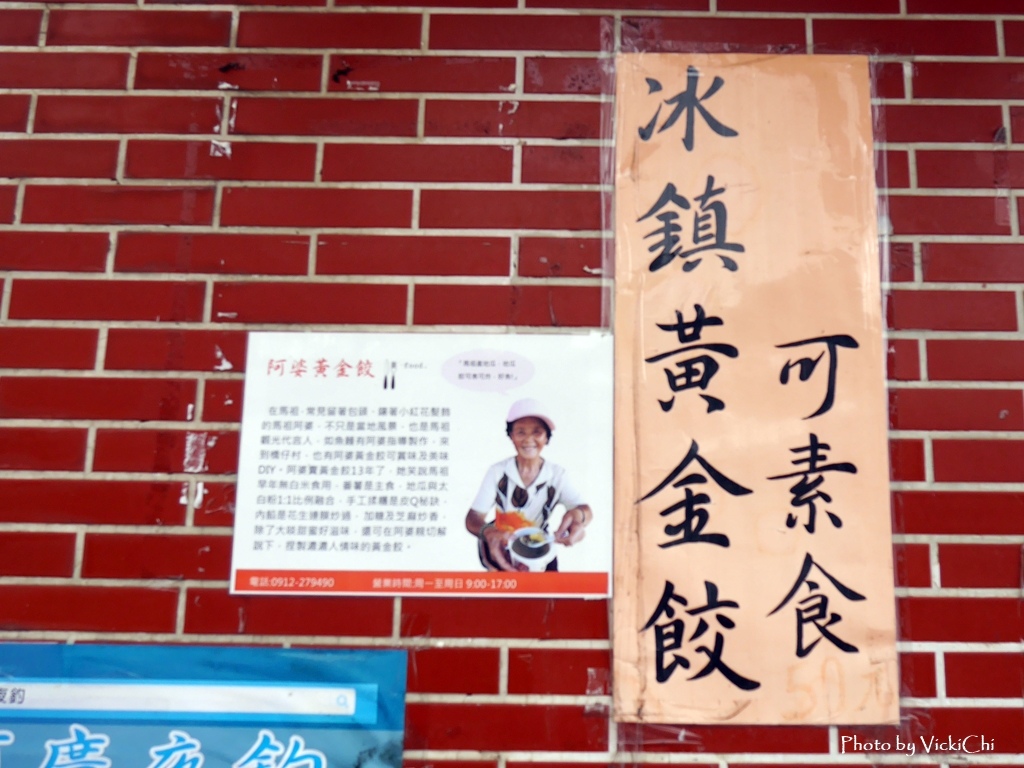 冰鎮黃金餃
可素食
50元
阿婆黃金餃
food.
在馬祖,常見留著包頭、鑲著小紅花髮飾
的馬祖阿婆,不只是當地風景,也是馬祖
觀光代言人,如魚麵有阿婆指導製作,來
到橋仔村,也有阿婆黃金餃可賞味及美味
DIY。阿婆賣黃金餃13年了,她笑說馬祖
早年無白米食用,番薯是主食,地瓜與太
白粉1:1比例融合,手工揉糰是皮Q秘訣,
內餡是花生連膜炒過,加糖及芝麻炒香,
除了大啖甜蜜好滋味,還可在阿婆親切解
說下,捏製濃濃人情味的黃金餃。
電話:0912-279490
營業時間:周一至周日 9:00-17:00
夜釣
夜釣
Photo by VickiChi